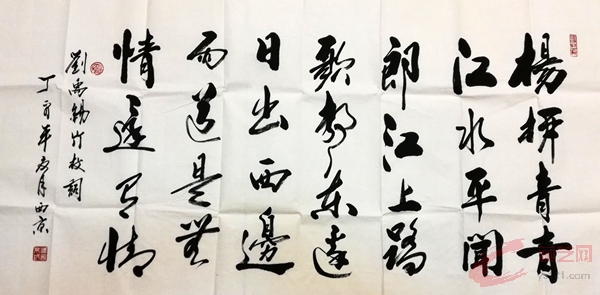 楊柳青青
江水平聞
郎江上踏
歌聲东邊
日出西邊
雨道是無
情還有情
劉禹錫竹枝詞
年月西京